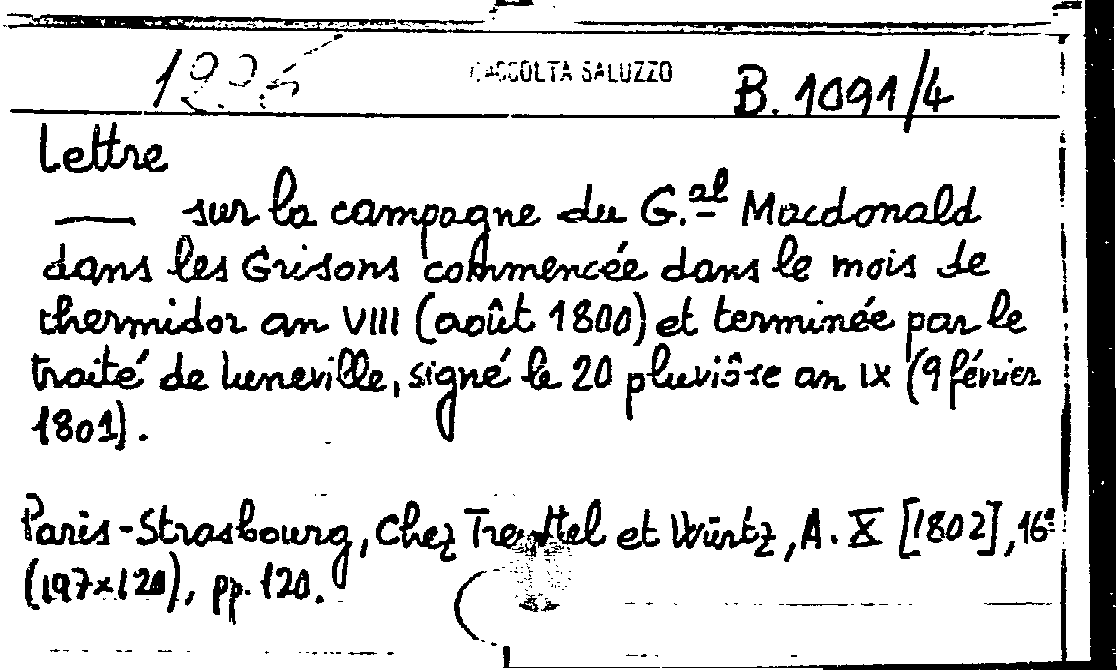 RACCOLTA SALUZZO B. 1091/4
Lettre
— sur la campagne du G.al Macdonald
dans les Grisons commencée dans le mois de
thermidor an VIII (août 1800) et terminée par le
traité de Luneville, signé le 20 pluviôse an IX (9 février
1801).
Paris-Strasbourg, Chez Treuttel et Würtz, A. X [1802], 16°
(197x120), pp. 120.